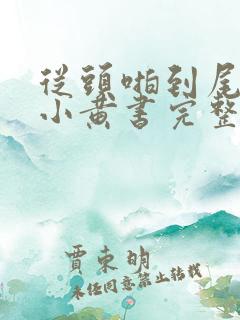 從頭啪到尾
小黄書完整
賈東明
未经同意禁止转载